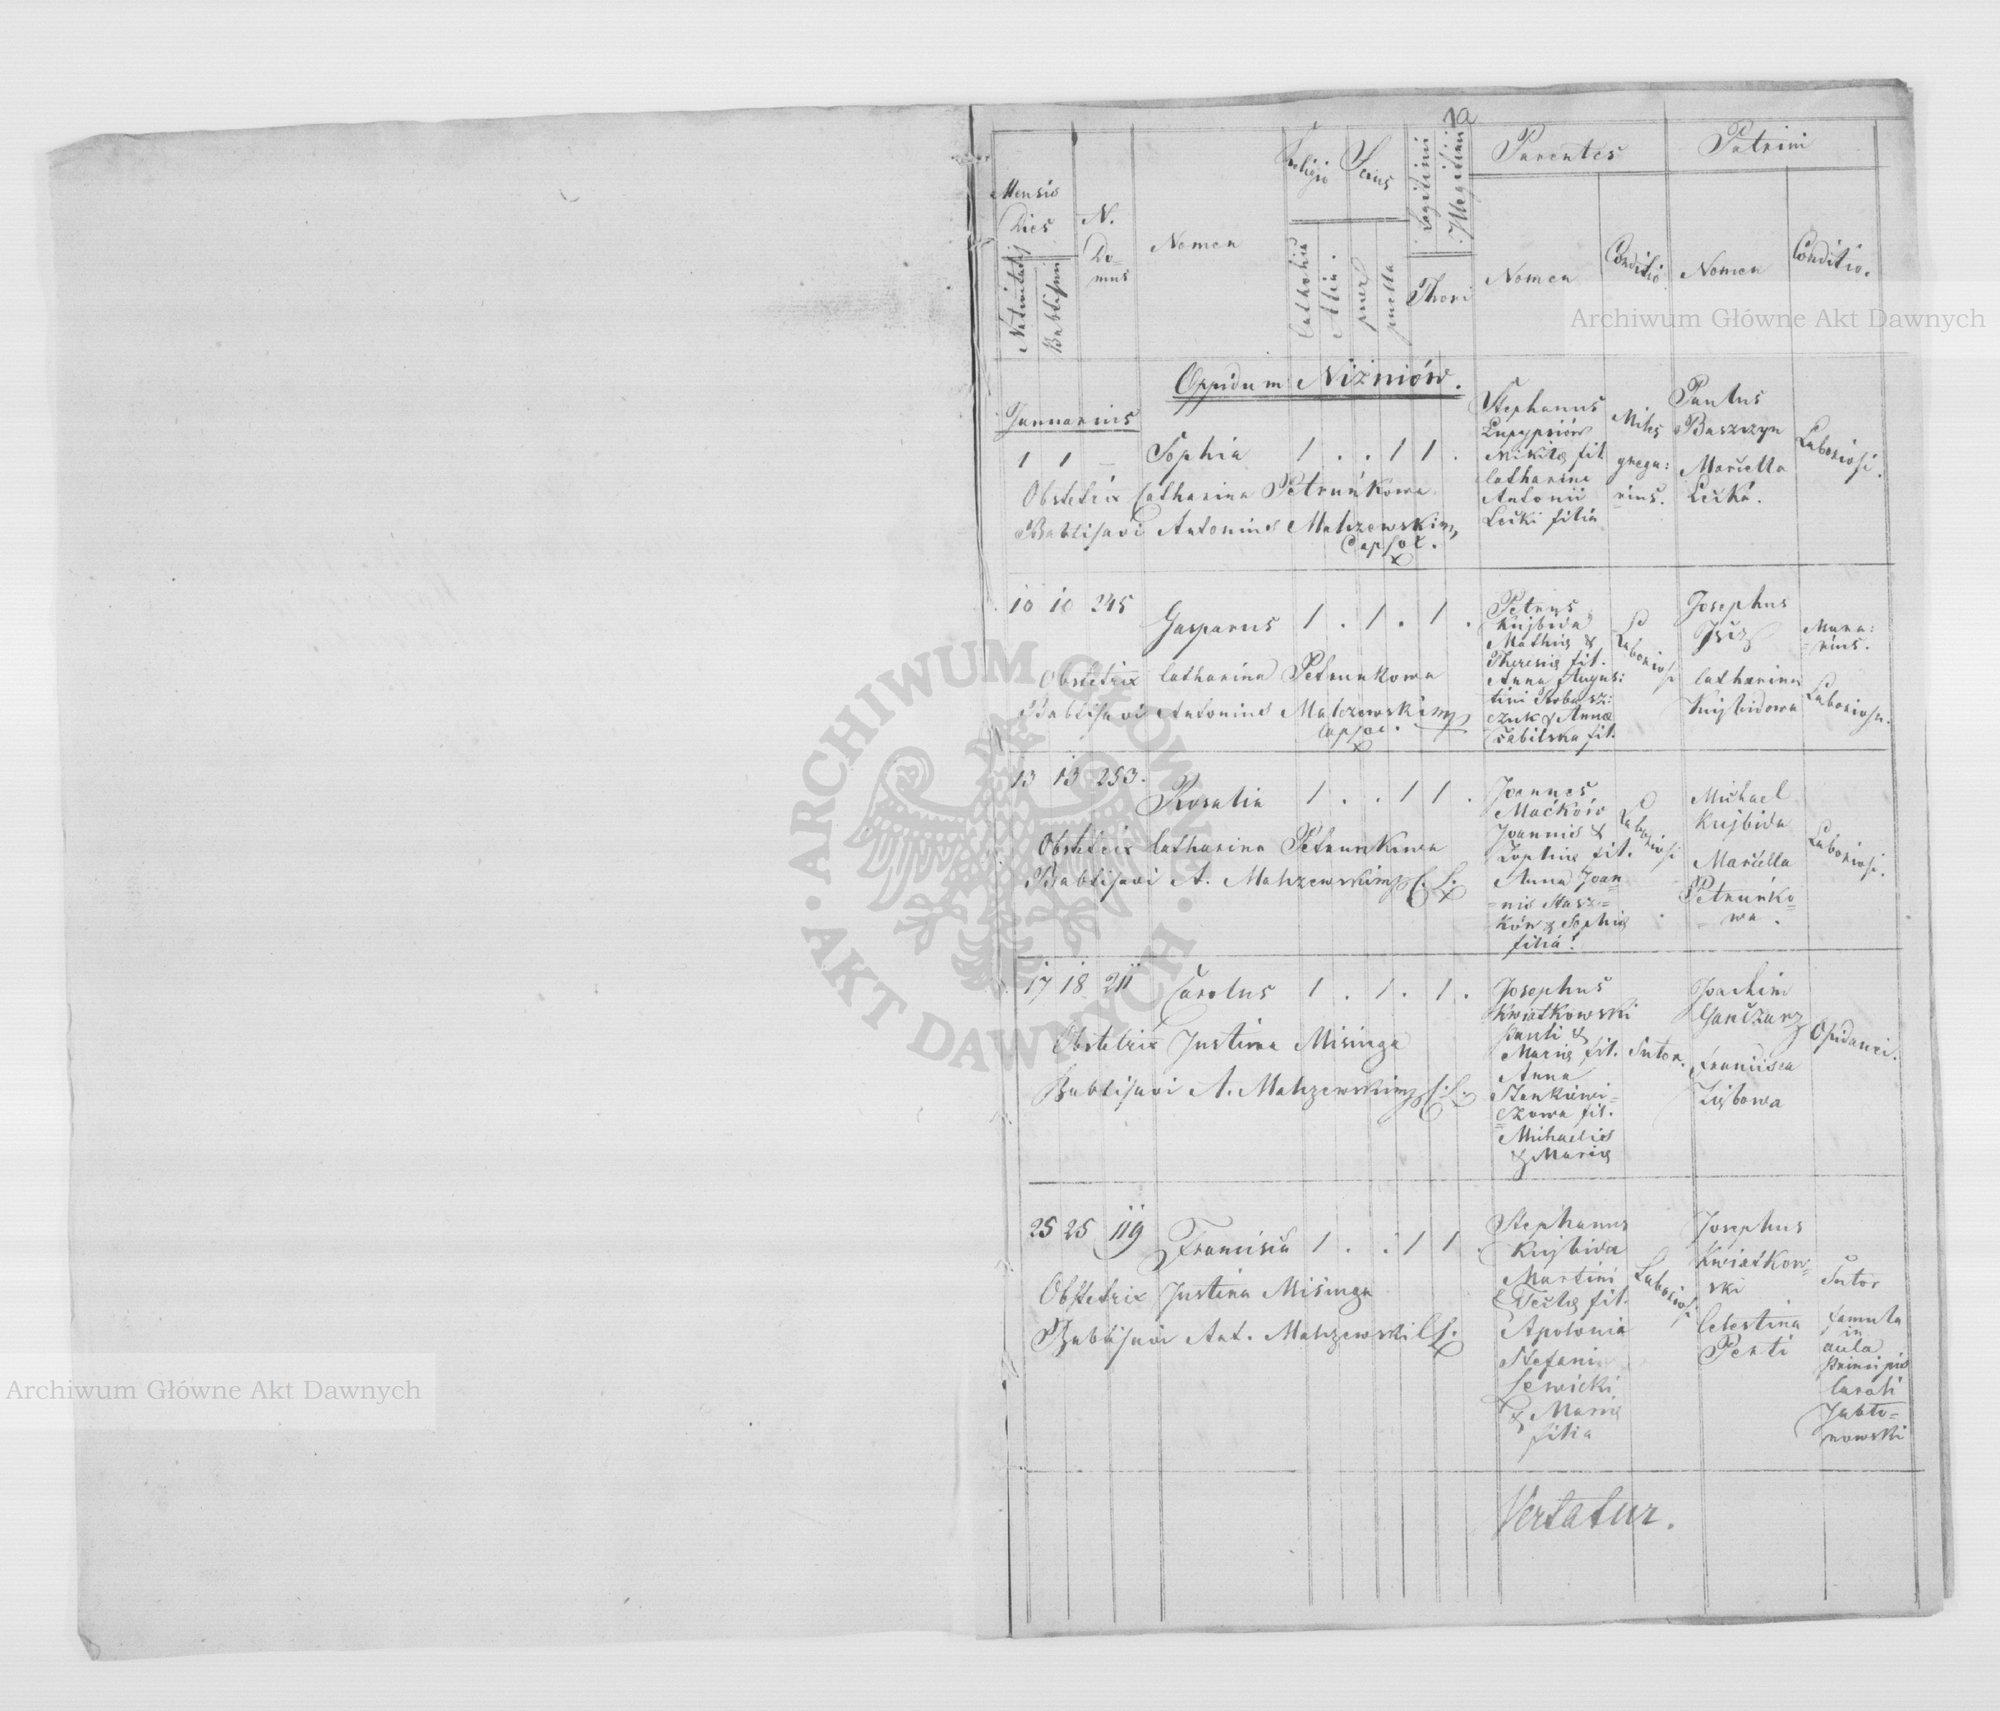 1a
Mensis
Dies
Nativitatis
Babtismi
N.
Do=
mus
Nomen
Religio
Catholica
Alia.
Sexus
puer
puella
Legitimi
Illegitimi
Thori
Parentes
Nomen
Conditio
Patrini
Nomen
Conditio.
Archiwum Główne Akt Dawnych
Oppidum Niżniów.
Januarius
1 1 – Sophia 1 . . 1 1 .
Obstetrix Catharina Petruńkowa
Babtisavi Antonius Malczewski
Stephanus
Nikitę fil
Catharina
Antonii
Lecki filia
Miles
grega:
rius.
Paulus
Baszczyn
Mariella
Lecka.
Laboriosi.
10 10 245 Gasparus 1 . 1 . 1 .
Obstetrix Catharina Petrunkowa
Babtisavi Antonius Malczewski
Petrus
Kujbida
Mathię &
Theresię fil.
Anna Augus:
tini
& Annæ
fil.
Laboriosi
Josephus
Catharina
Kujbidowa
Mura:
rius.
Laboriosa.
13 13 253. Rosalia 1 . . 1 1 .
Obstetrix Catharina Petrunkowa
Babtisavi A. Malczewski
Joannes
Maćków
Joannis &
Zophię fil.
Anna Joan=
=nis Stasz=
ków & Sophię
filia.
Laboriosi
Michael
Kujbida
Mariella
Petruńko=
wa.
Laboriosi.
17 18 211 Carolus 1 . 1 . 1 .
Obstetrix Justina Misinga
Babtisavi A. Malczewski
Josephus
Kwiatkowski
Pauli &
Marię fil.
Anna
Stankiewi=
=czowa fil.
Michaelis
& Marię
Sutor.
Joachim
Ganczarz
Francisca
Ziębowa
Opidanei.
25 25 119 Francisca 1 . . 1 1 .
Obstetrix Justina Misinga
Babtisavi Ant. Malczewski
Stephanus
Kujbida
Martini
& Teclę fil.
Apolonia
Stefani
Lewicki
& Marię
filia
Laboriosi
Josephus
Kwiatkow=
ski
Celestina
Perti
Sutor
famula
in
aula
Principis
Caroli
Jabło=
nowski
Vertatur.
ARCHIWUM GŁÓWNE AKT DAWNYCH
Archiwum Główne Akt Dawnych